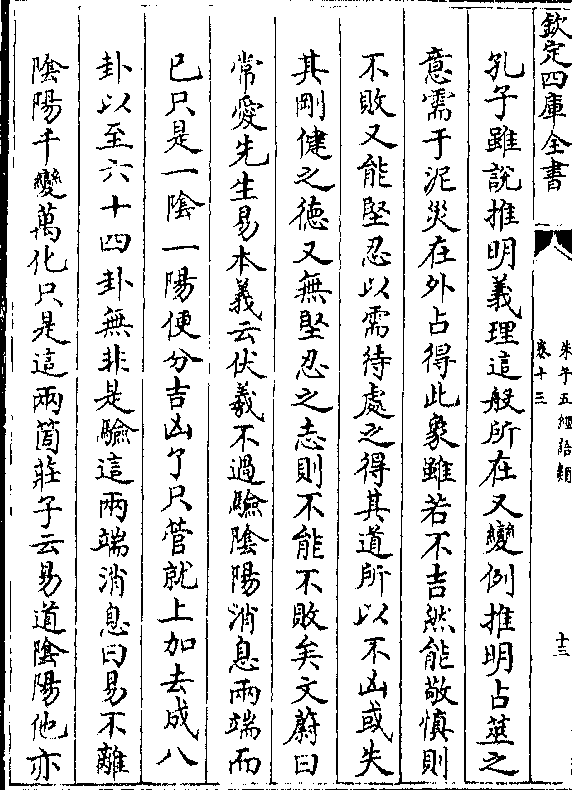 欽定四庫全書
朱子五經語類
卷十三
十三
孔子雖說推明義理這般所在又變例推明占筮之
意需于泥災在外占得此象雖若不吉然能敬慎則
不敗又能堅忍以需待處之得其道所以不凶或失
其剛健之德又無堅忍之志則不能不敗矣文蔚曰
常愛先生易本義云伏羲不過驗陰陽消息兩端而
已只是一陰一陽便分吉凶了只管就上加去成八
卦以至六十四卦無非是驗這兩端消息曰易不離
陰陽千變萬化只是這兩箇莊子云易道陰陽他亦